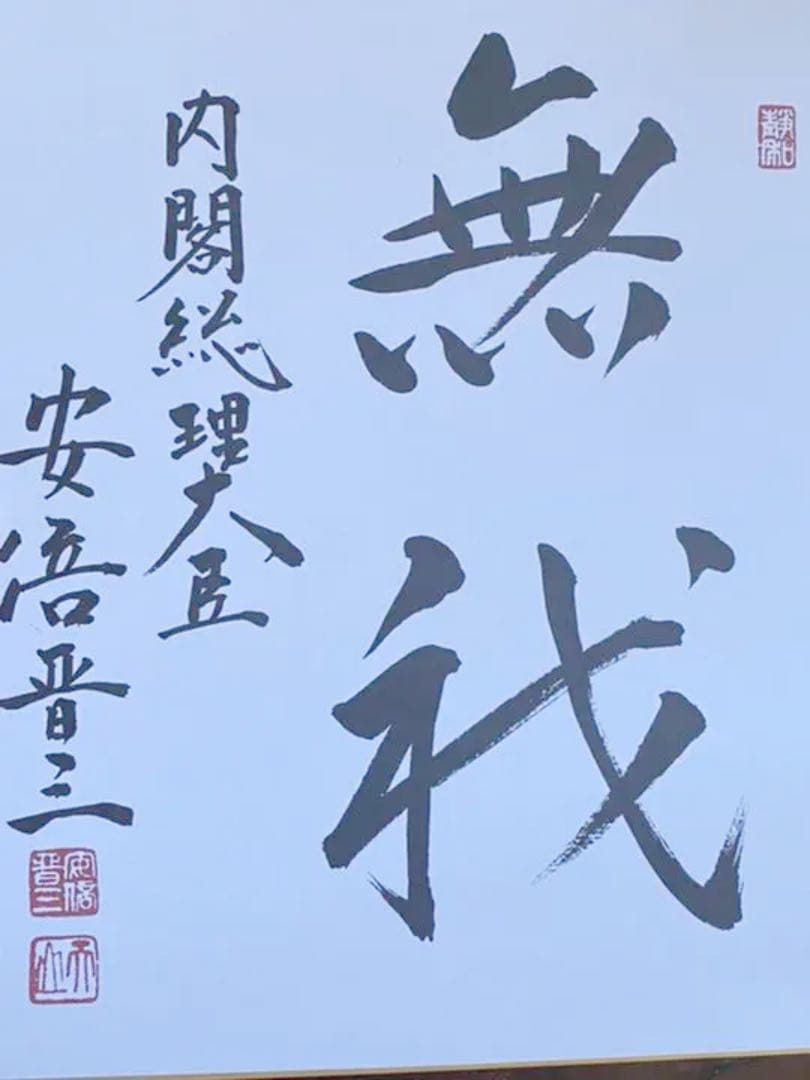 無我
内閣総理大臣
安倍晋三
安倍
晋三